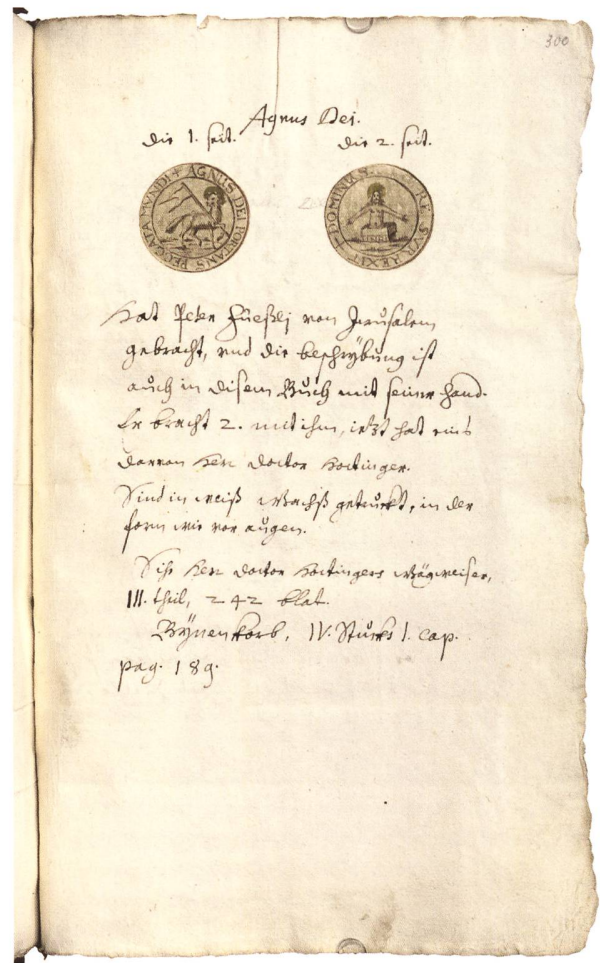 300
Agnus Dei.
die 1. seit. die 2. seit.
AGNUS DEI PORTANS PECCATA MVNDI +
DOMINUS RE SVR REXIT
Hat Peter Füeßlj von Jerusalem
gebracht, vnd die beschrybung ist
auch in disem Buch mit seiner hand.
Er bracht 2. mit ihm, ietzt hat eins
darvon Herr Doctor Hottinger.
Sind in weiß Wachß getruckt, in der
form wie vor augen.
Sihe Herr Doctor Hottingers Wägweiser,
III. theil, 242 blat.
Bynenkorb, IV. Stucks 1. cap.
pag. 189.